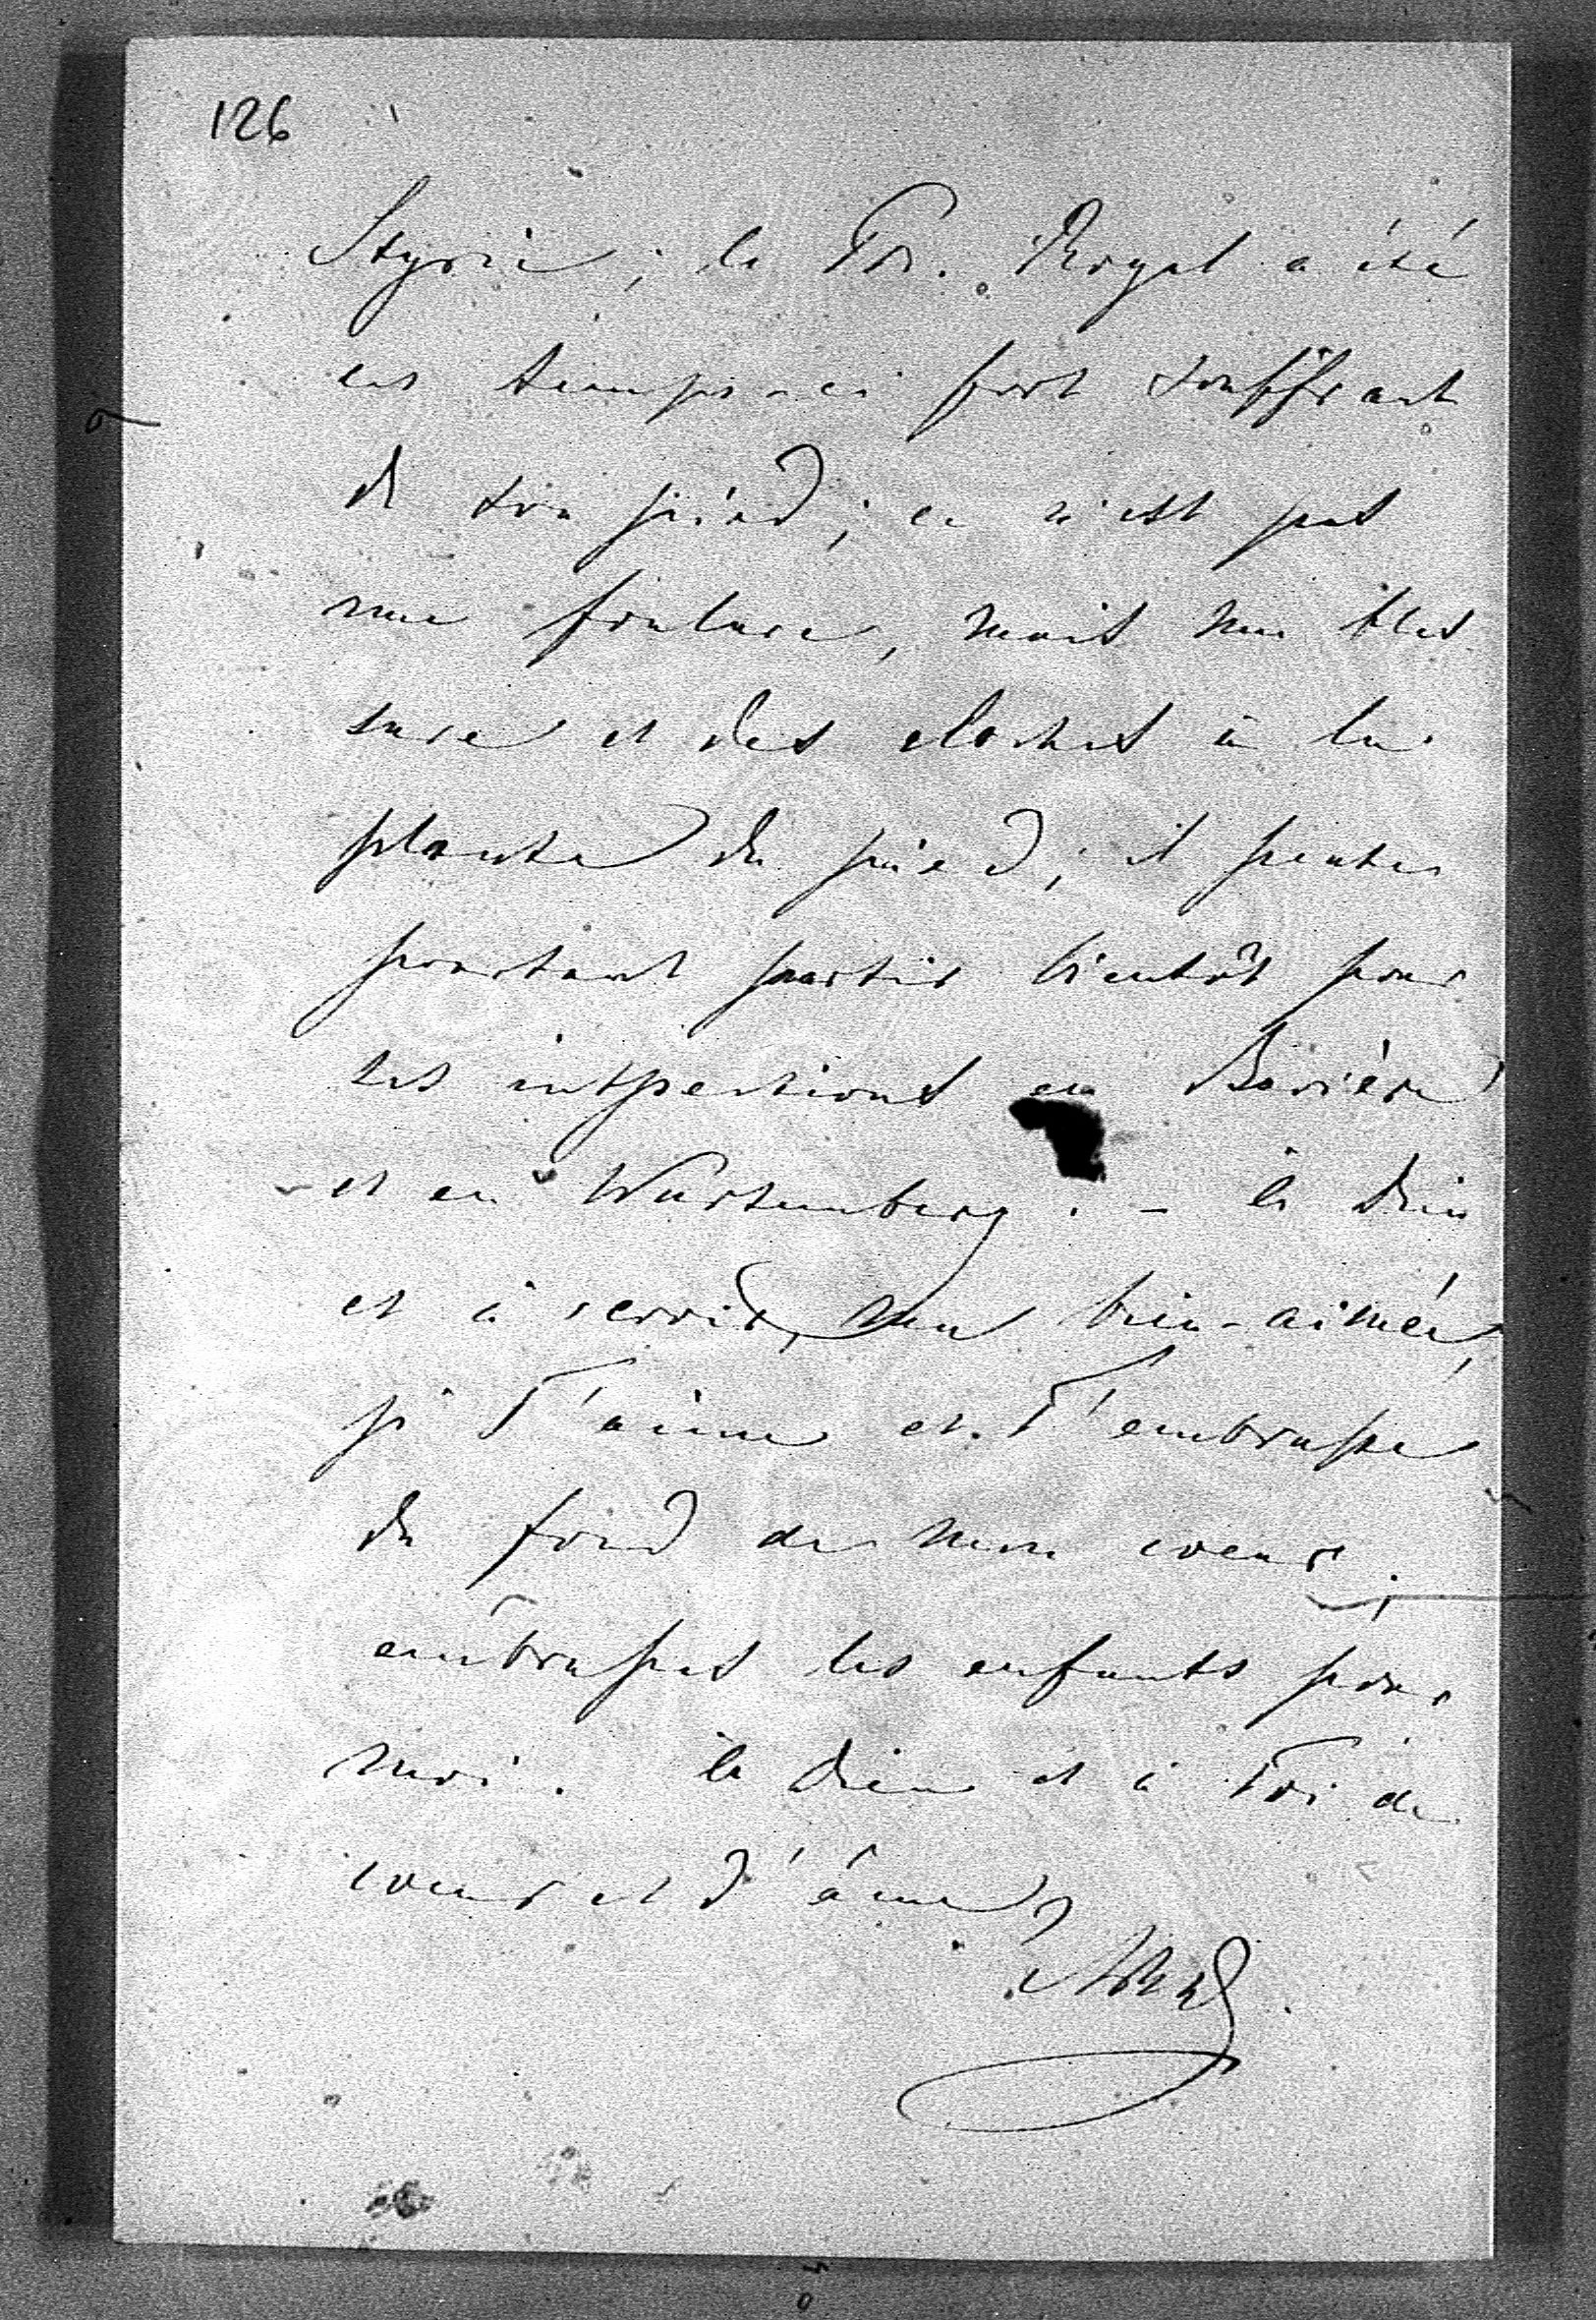 126
Styrie; le Pr. Royal a été
ces temps-ci fort souffrant
de son pied; ce n'est pas
une foulure, mais une bles
sure et des cloches à la
plante du pied; il pense
pourtant partir bientôt pour
ses inspections en Bavière
et en Wurtemberg. - à Dieu
et à revoir, mon bien-aimé,
je T'aime et T'embrasse
du fond de mon coeur.
embrasses les enfants pour
moi. à Dieu et à Toi de
coeur et d'âme